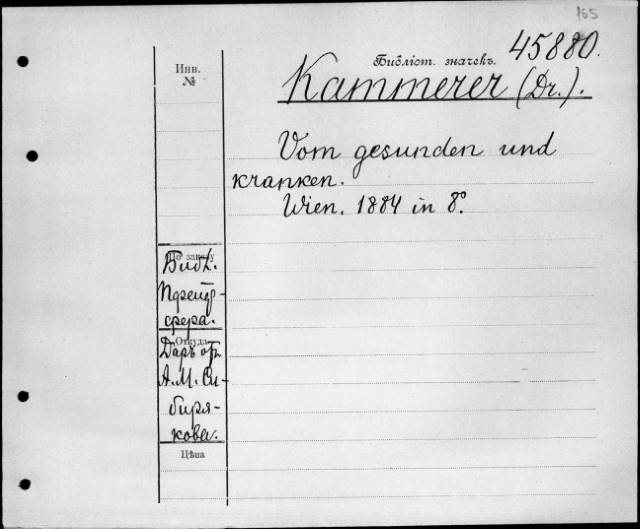 165
45880.
Инв.
№
Библіот. значекъ.
Kammerer (Dr.).
Vom gesunden und
kranken.
Wien. 1884 in 8º.
По заказу
Библ.
Пфейф-
фера.
Откуда
Даръ отъ
А. М. Си-
биря-
кова.
Цѣна